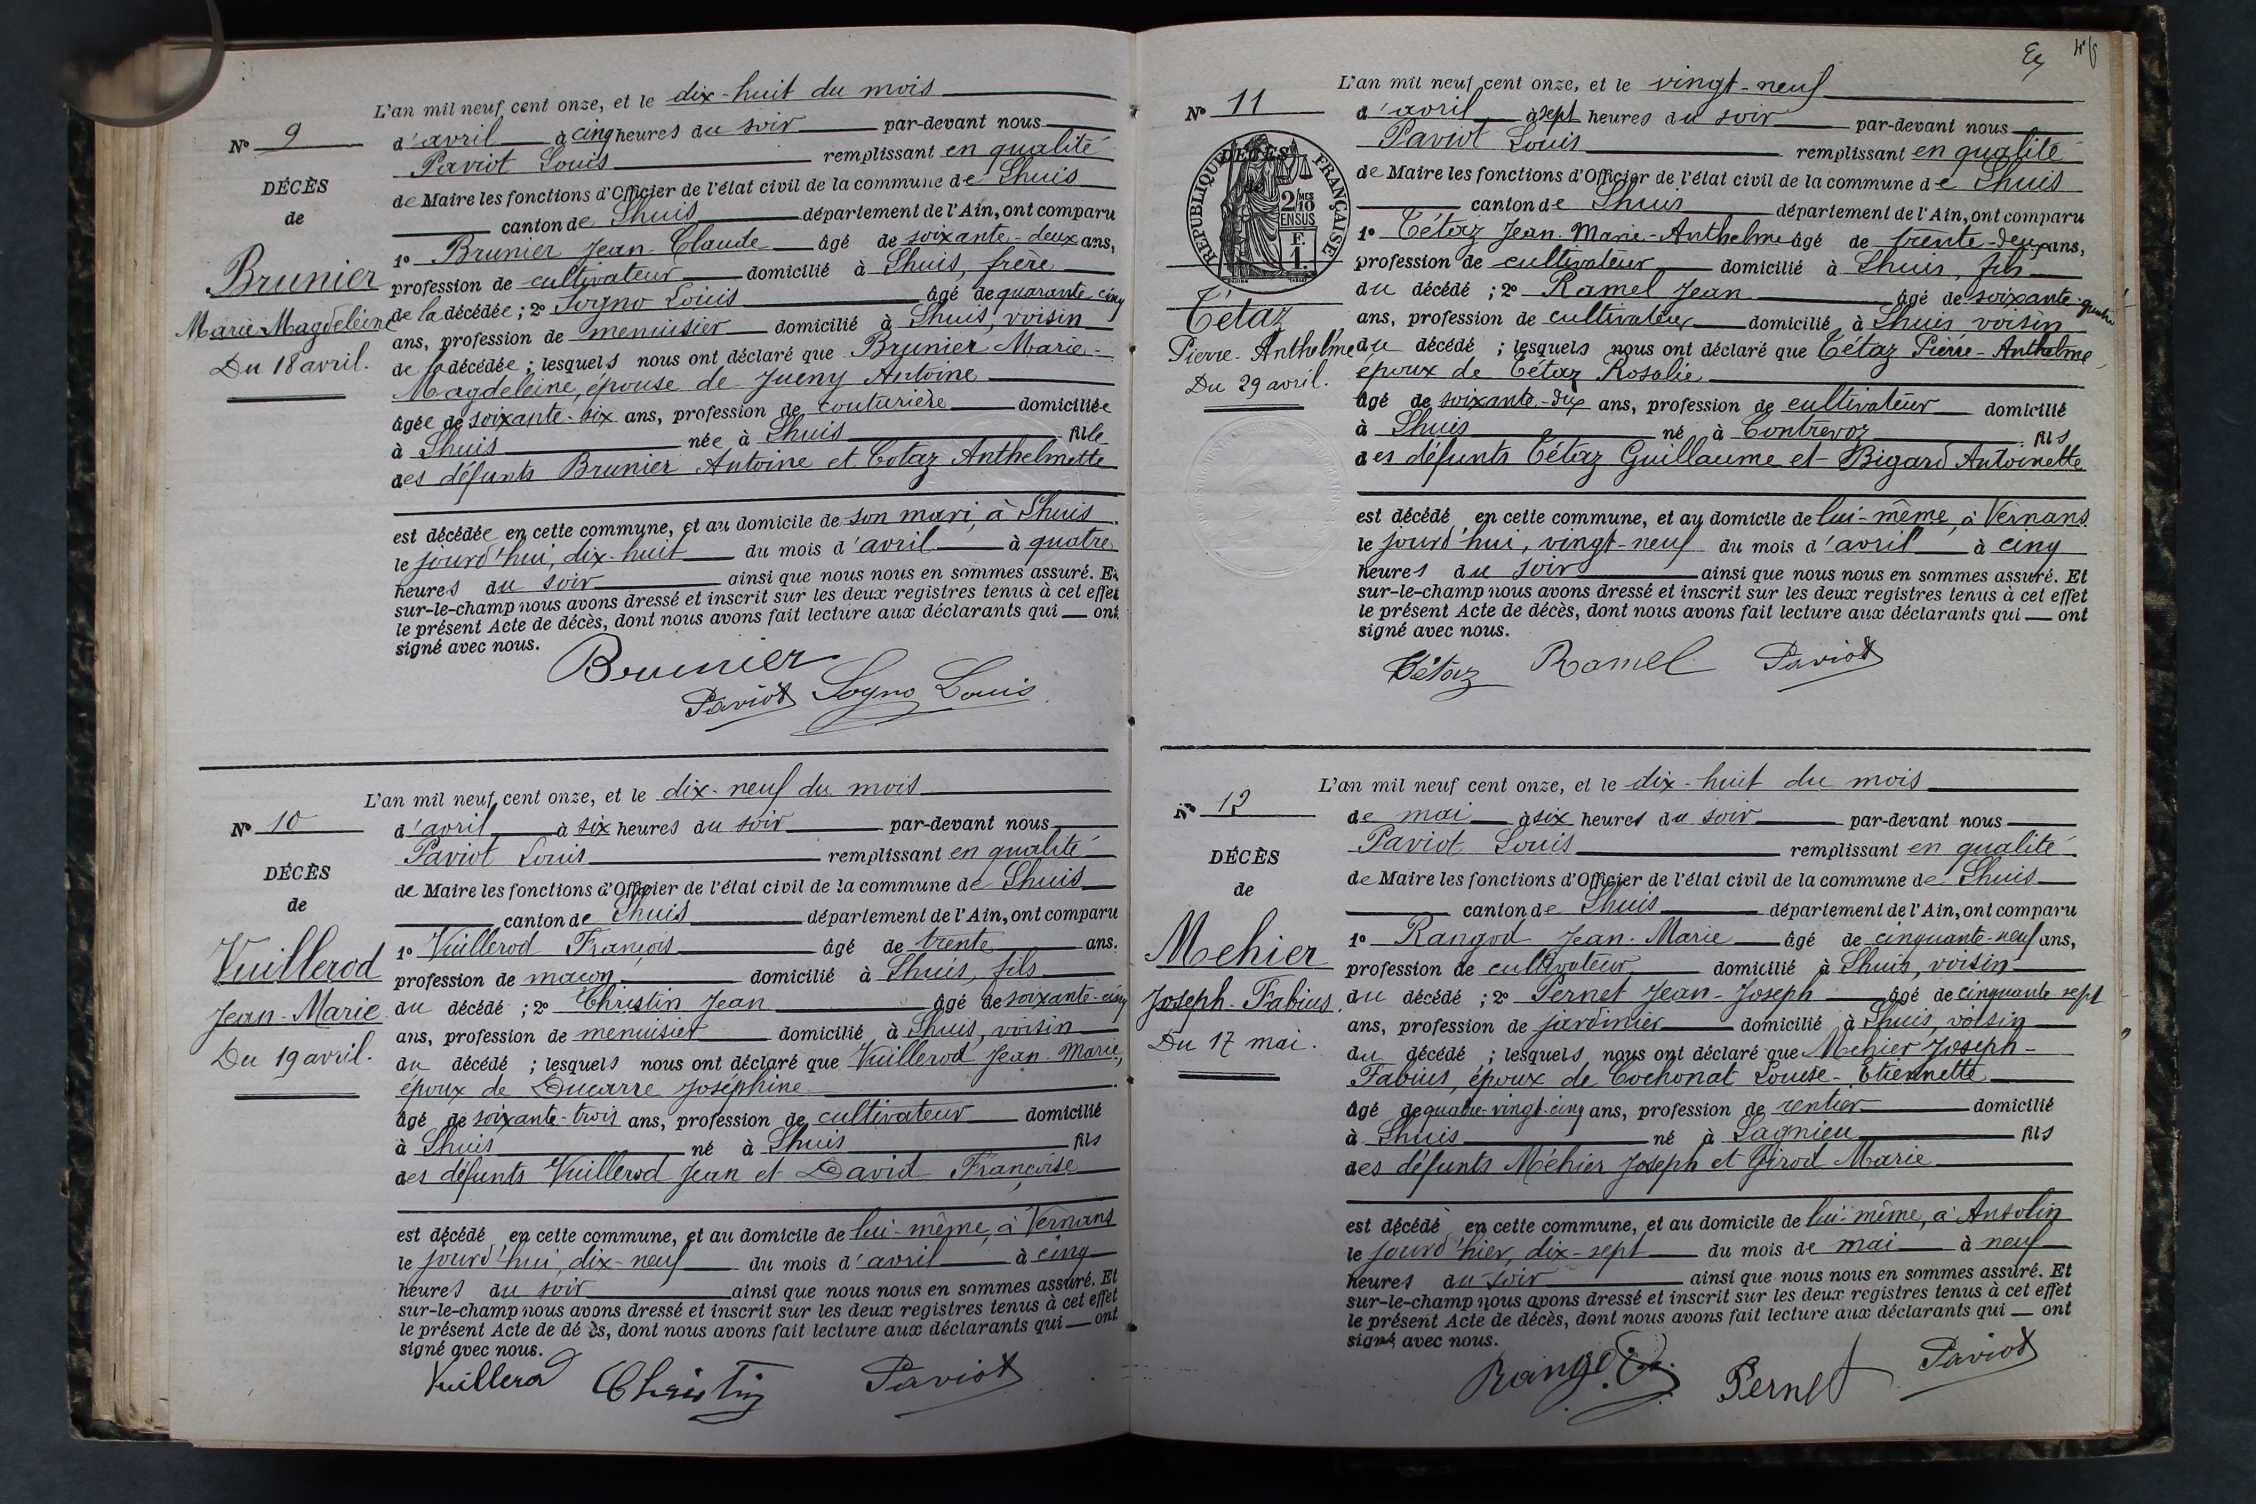 L'an mil neuf cent onze, et le dix-huit du mois
N° 9
d'avril à cinq heures du soir par-devant nous
Paviot Louis remplissant en qualité
DÉCÈS
de Maire les fonctions d'Officier de l'état civil de la commune de Lhuis
de
canton de Lhuis département de l'Ain, ont comparu
1° Brunier Jean-Claude âgé de soixante-deux ans,
Brunier
profession de cultivateur domicilié à Lhuis, frère
Marie Magdeleine
de la décédée; 2° Sogno Louis âgé de quarante cinq
ans, profession de menuisier domicilié à Lhuis, voisin
Du 18 avril.
de la décédée; lesquels nous ont déclaré que Brunier Marie-
Magdeleine, épouse de Jueny Antoine
âgée de soixante-six ans, profession de couturière domiciliée
à Lhuis née à Lhuis fille
des défunts Brunier Antoine et Cotaz Anthelmette
est décédée en cette commune, et au domicile de son mari, à Lhuis
le jourd'hui, dix-huit du mois d'avril à quatre
heures du soir ainsi que nous nous en sommes assuré. Et
sur-le-champ nous avons dressé et inscrit sur les deux registres tenus à cet effet
le présent Acte de décès, dont nous avons fait lecture aux déclarants qui ont
signé avec nous.
Brunier
Paviot Sogno Louis
L'an mil neuf cent onze, et le dix-neuf du mois
N° 10
d'avril à six heures du soir par-devant nous
Paviot Louis remplissant en qualité
DÉCÈS
de Maire les fonctions d'Officier de l'état civil de la commune de Lhuis
de
canton de Lhuis département de l'Ain, ont comparu
1° Vuillerod François âgé de trente ans.
Vuillerod
profession de maçon domicilié à Lhuis, fils
Jean-Marie
du décédé; 2° Christin Jean âgé de soixante-cinq
ans, profession de menuisier domicilié à Lhuis, voisin
Du 19 avril.
du décédé; lesquels nous ont déclaré que Vuillerod Jean-Marie,
époux de Ducarre Joséphine
âgé de soixante-trois ans, profession de cultivateur domicilié
à Lhuis né à Lhuis fils
des défunts Vuillerod Jean et David Françoise
est décédé en cette commune, et au domicile de lui-même, à Vernans
le jourd'hui, dix-neuf du mois d'avril à cinq
heures du soir ainsi que nous nous en sommes assuré. Et
sur-le-champ nous avons dressé et inscrit sur les deux registres tenus à cet effet
le présent Acte de dé ès, dont nous avons fait lecture aux déclarants qui ont
signé avec nous.
Vuillerod Christin Paviot
L'an mil neuf cent onze, et le vingt-neuf
N° 11
d'avril à sept heures du soir par-devant nous
Paviot Louis remplissant en qualité
DÉCÈS
RÉPUBLIQUE FRANÇAISE
2/10 MES
EN SUS
F.
1.
de Maire les fonctions d'Officier de l'état civil de la commune de Lhuis
canton de Lhuis département de l'Ain, ont comparu
1° Tétaz Jean-Marie-Anthelme âgé de trente-deux ans,
profession de cultivateur domicilié à Lhuis, fils
du décédé; 2° Ramel Jean âgé de soixante-quatre
Tétaz
ans, profession de cultivateur domicilié à Lhuis voisin
Pierre-Anthelme
du décédé; lesquels nous ont déclaré que Tétaz Pierre-Anthelme,
Du 29 avril.
époux de Tétaz Rosalie
âgé de soixante-dix ans, profession de cultivateur domicilié
à Lhuis né à Contrevoz fils
des défunts Tétaz Guillaume et Bigard Antoinette
est décédé en cette commune, et au domicile de lui-même, à Vernans
le jourd'hui, vingt-neuf du mois d'avril à cinq
heures du soir ainsi que nous nous en sommes assuré. Et
sur-le-champ nous avons dressé et inscrit sur les deux registres tenus à cet effet
le présent Acte de décès, dont nous avons fait lecture aux déclarants qui ont
signé avec nous.
Tétaz Ramel Paviot
L'an mil neuf cent onze, et le dix-huit du mois
N° 12
de mai à six heures du soir par-devant nous
Paviot Louis remplissant en qualité
DÉCÈS
de Maire les fonctions d'Officier de l'état civil de la commune de Lhuis
de
canton de Lhuis département de l'Ain, ont comparu
1° Rangod Jean-Marie âgé de cinquante-neuf ans,
Mehier
profession de cultivateur domicilié à Lhuis, voisin
Joseph-Fabius.
du décédé; 2° Pernet Jean-Joseph âgé de cinquante sept
ans, profession de jardinier domicilié à Lhuis, voisin
Du 17 mai.
du décédé; lesquels nous ont déclaré que Mehier Joseph-
Fabius, époux de Cochonat Louise-Etiennette
âgé de quatre-vingt-cinq ans, profession de rentier domicilié
à Lhuis né à Lagnieu fils
des défunts Méhier Joseph et Girod Marie
est décédé en cette commune, et au domicile de lui-même, à Ansolin
le jourd'hier, dix-sept du mois de mai à neuf
heures du soir ainsi que nous nous en sommes assuré. Et
sur-le-champ nous avons dressé et inscrit sur les deux registres tenus à cet effet
le présent Acte de décès, dont nous avons fait lecture aux déclarants qui ont
signé avec nous.
Rangod Pernet Paviot